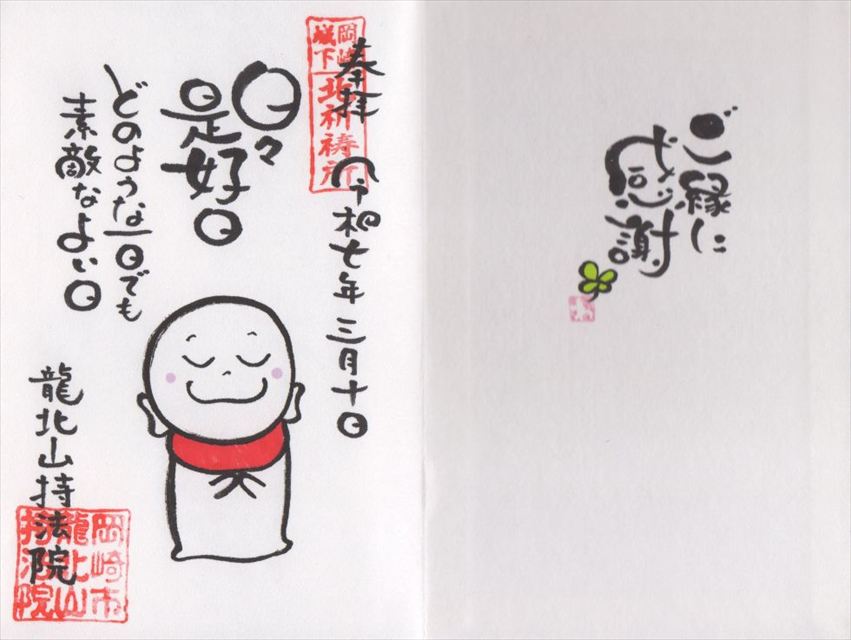 ご縁に
感謝
奉拝 令和七年三月十日
岡崎
城下
北祈祷所
日々
是好日
どのような一日でも
素敵なよい日
龍北山持法院
岡崎市
龍北山
持法院